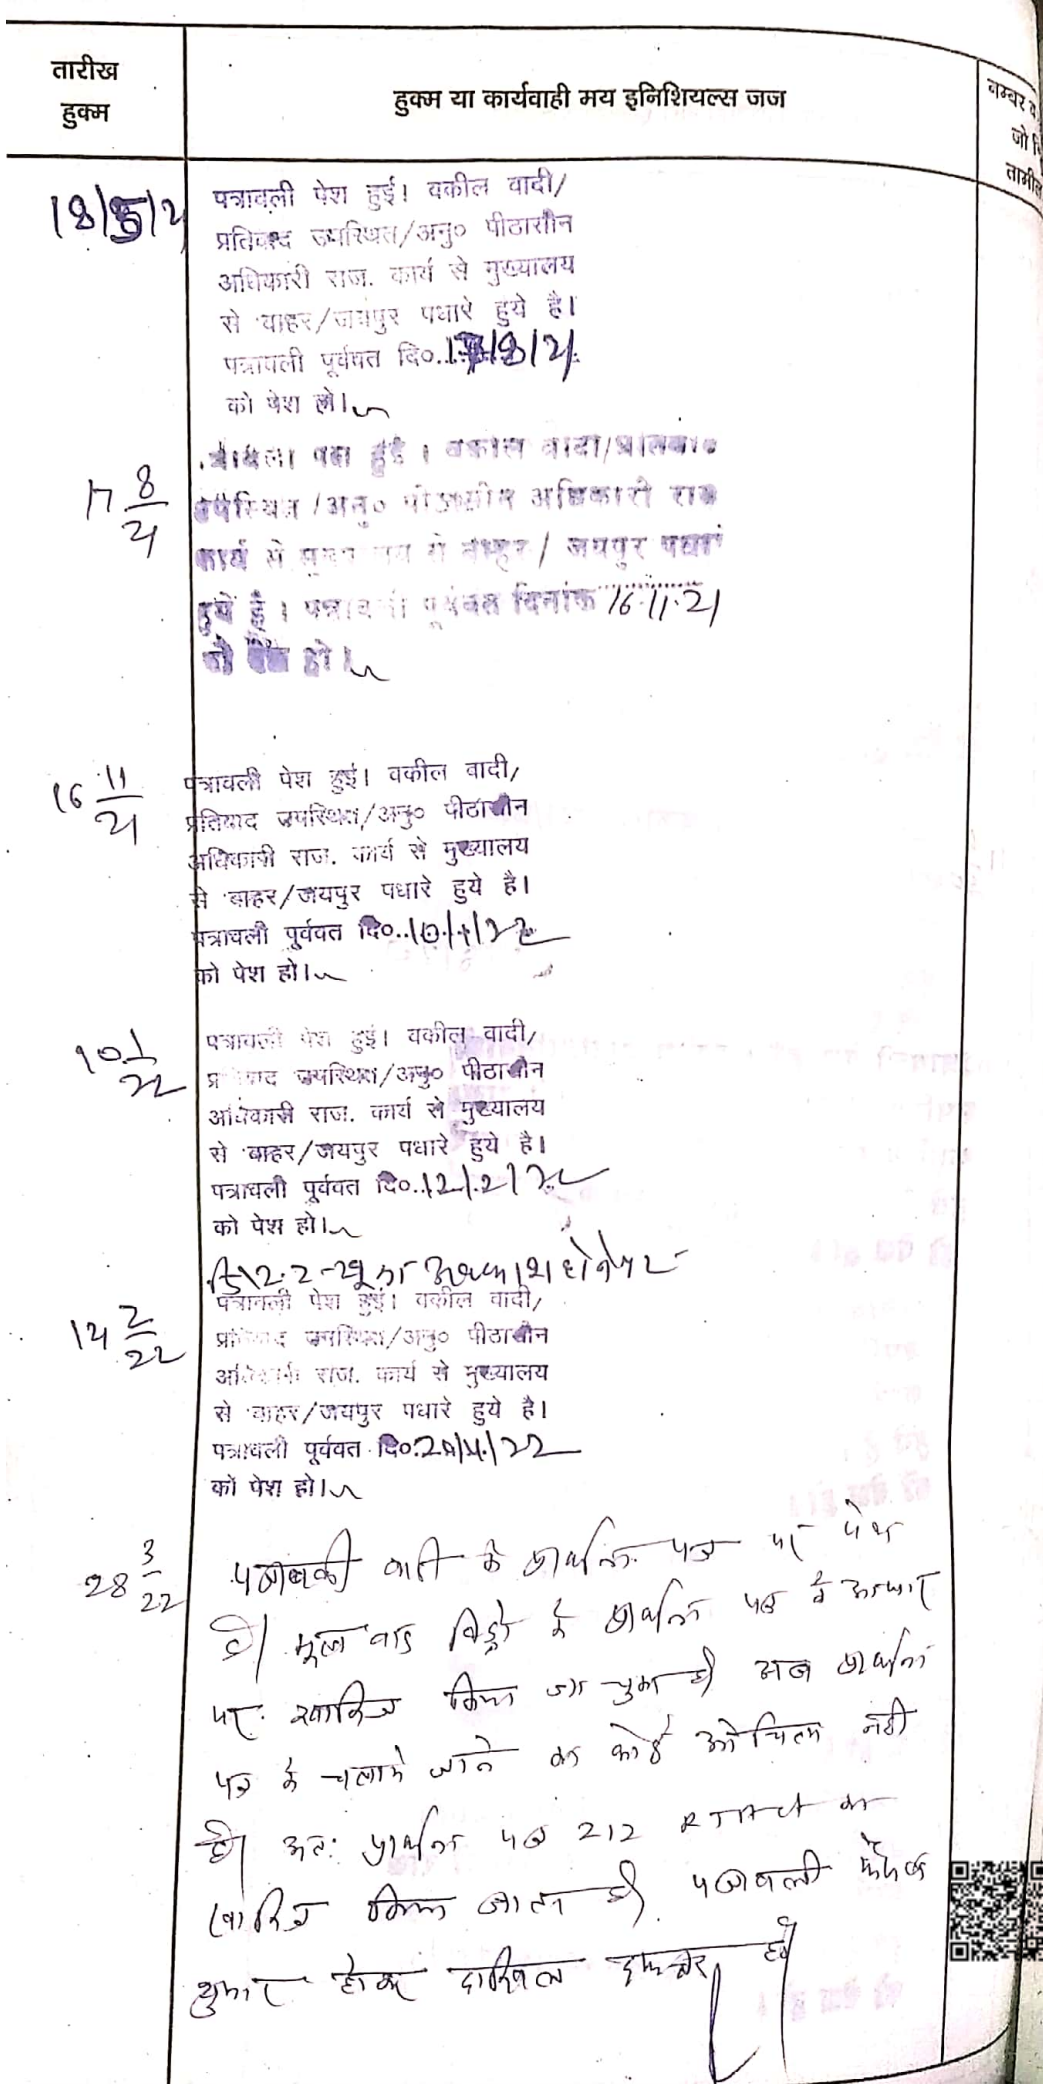 तारीख
हुक्म
हुक्म या कार्यवाही मय इनिशियल्स जज
नम्बर व
जो
तामील
18/5/21
पत्रावली पेश हुई। वकील वादी/
प्रतिवाद उपस्थित/अनु० पीठासीन
अधिकारी राज. कार्य से मुख्यालय
से बाहर/जयपुर पधारे हुये है।
पत्रावली पूर्ववत दि०..17/8/21
को पेश हो।
17 8/21
पेश हुई । वकील वादी/प्रतिवाद
उपस्थित/अनु० पीठासीन अधिकारी राज
कार्य से मुख्यालय से बाहर/जयपुर पधारे
हुये है । पत्रावली पूर्ववत दिनांक 16.11.21
को पेश हो।
16 11/21
पत्रावली पेश हुई। वकील वादी/
प्रतिवाद उपस्थित/अनु० पीठासीन
अधिकारी राज. कार्य से मुख्यालय
से बाहर/जयपुर पधारे हुये है।
पत्रावली पूर्ववत दि०..10/1/22
को पेश हो।
10 1/22
पत्रावली पेश हुई। वकील वादी/
प्रतिवाद उपस्थित/अनु० पीठासीन
अधिकारी राज. कार्य से मुख्यालय
से बाहर/जयपुर पधारे हुये है।
पत्रावली पूर्ववत दि०..12/2/22
को पेश हो।
दि 12.2.22 का अवकाश होने पर
14 2/22
पत्रावली पेश हुई। वकील वादी/
प्रतिवाद उपस्थित/अनु० पीठासीन
अधिकारी राज. कार्य से मुख्यालय
से बाहर/जयपुर पधारे हुये है।
पत्रावली पूर्ववत दि०.25/4/22
को पेश हो।
28 3/22
पत्रावली वादी के प्रार्थना पत्र पर पेश
है। मूल वाद विड्रो के प्रार्थना पत्र के आधार
पर खारिज किया जा चुका है। अब प्रार्थना
पत्र के चलाये जाने का कोई औचित्य नही
है। अतः प्रार्थना पत्र 212 RTAct का
खारिज किया जाता है। पत्रावली फैसल
शुमार होकर दाखिल दफ्तर हो।